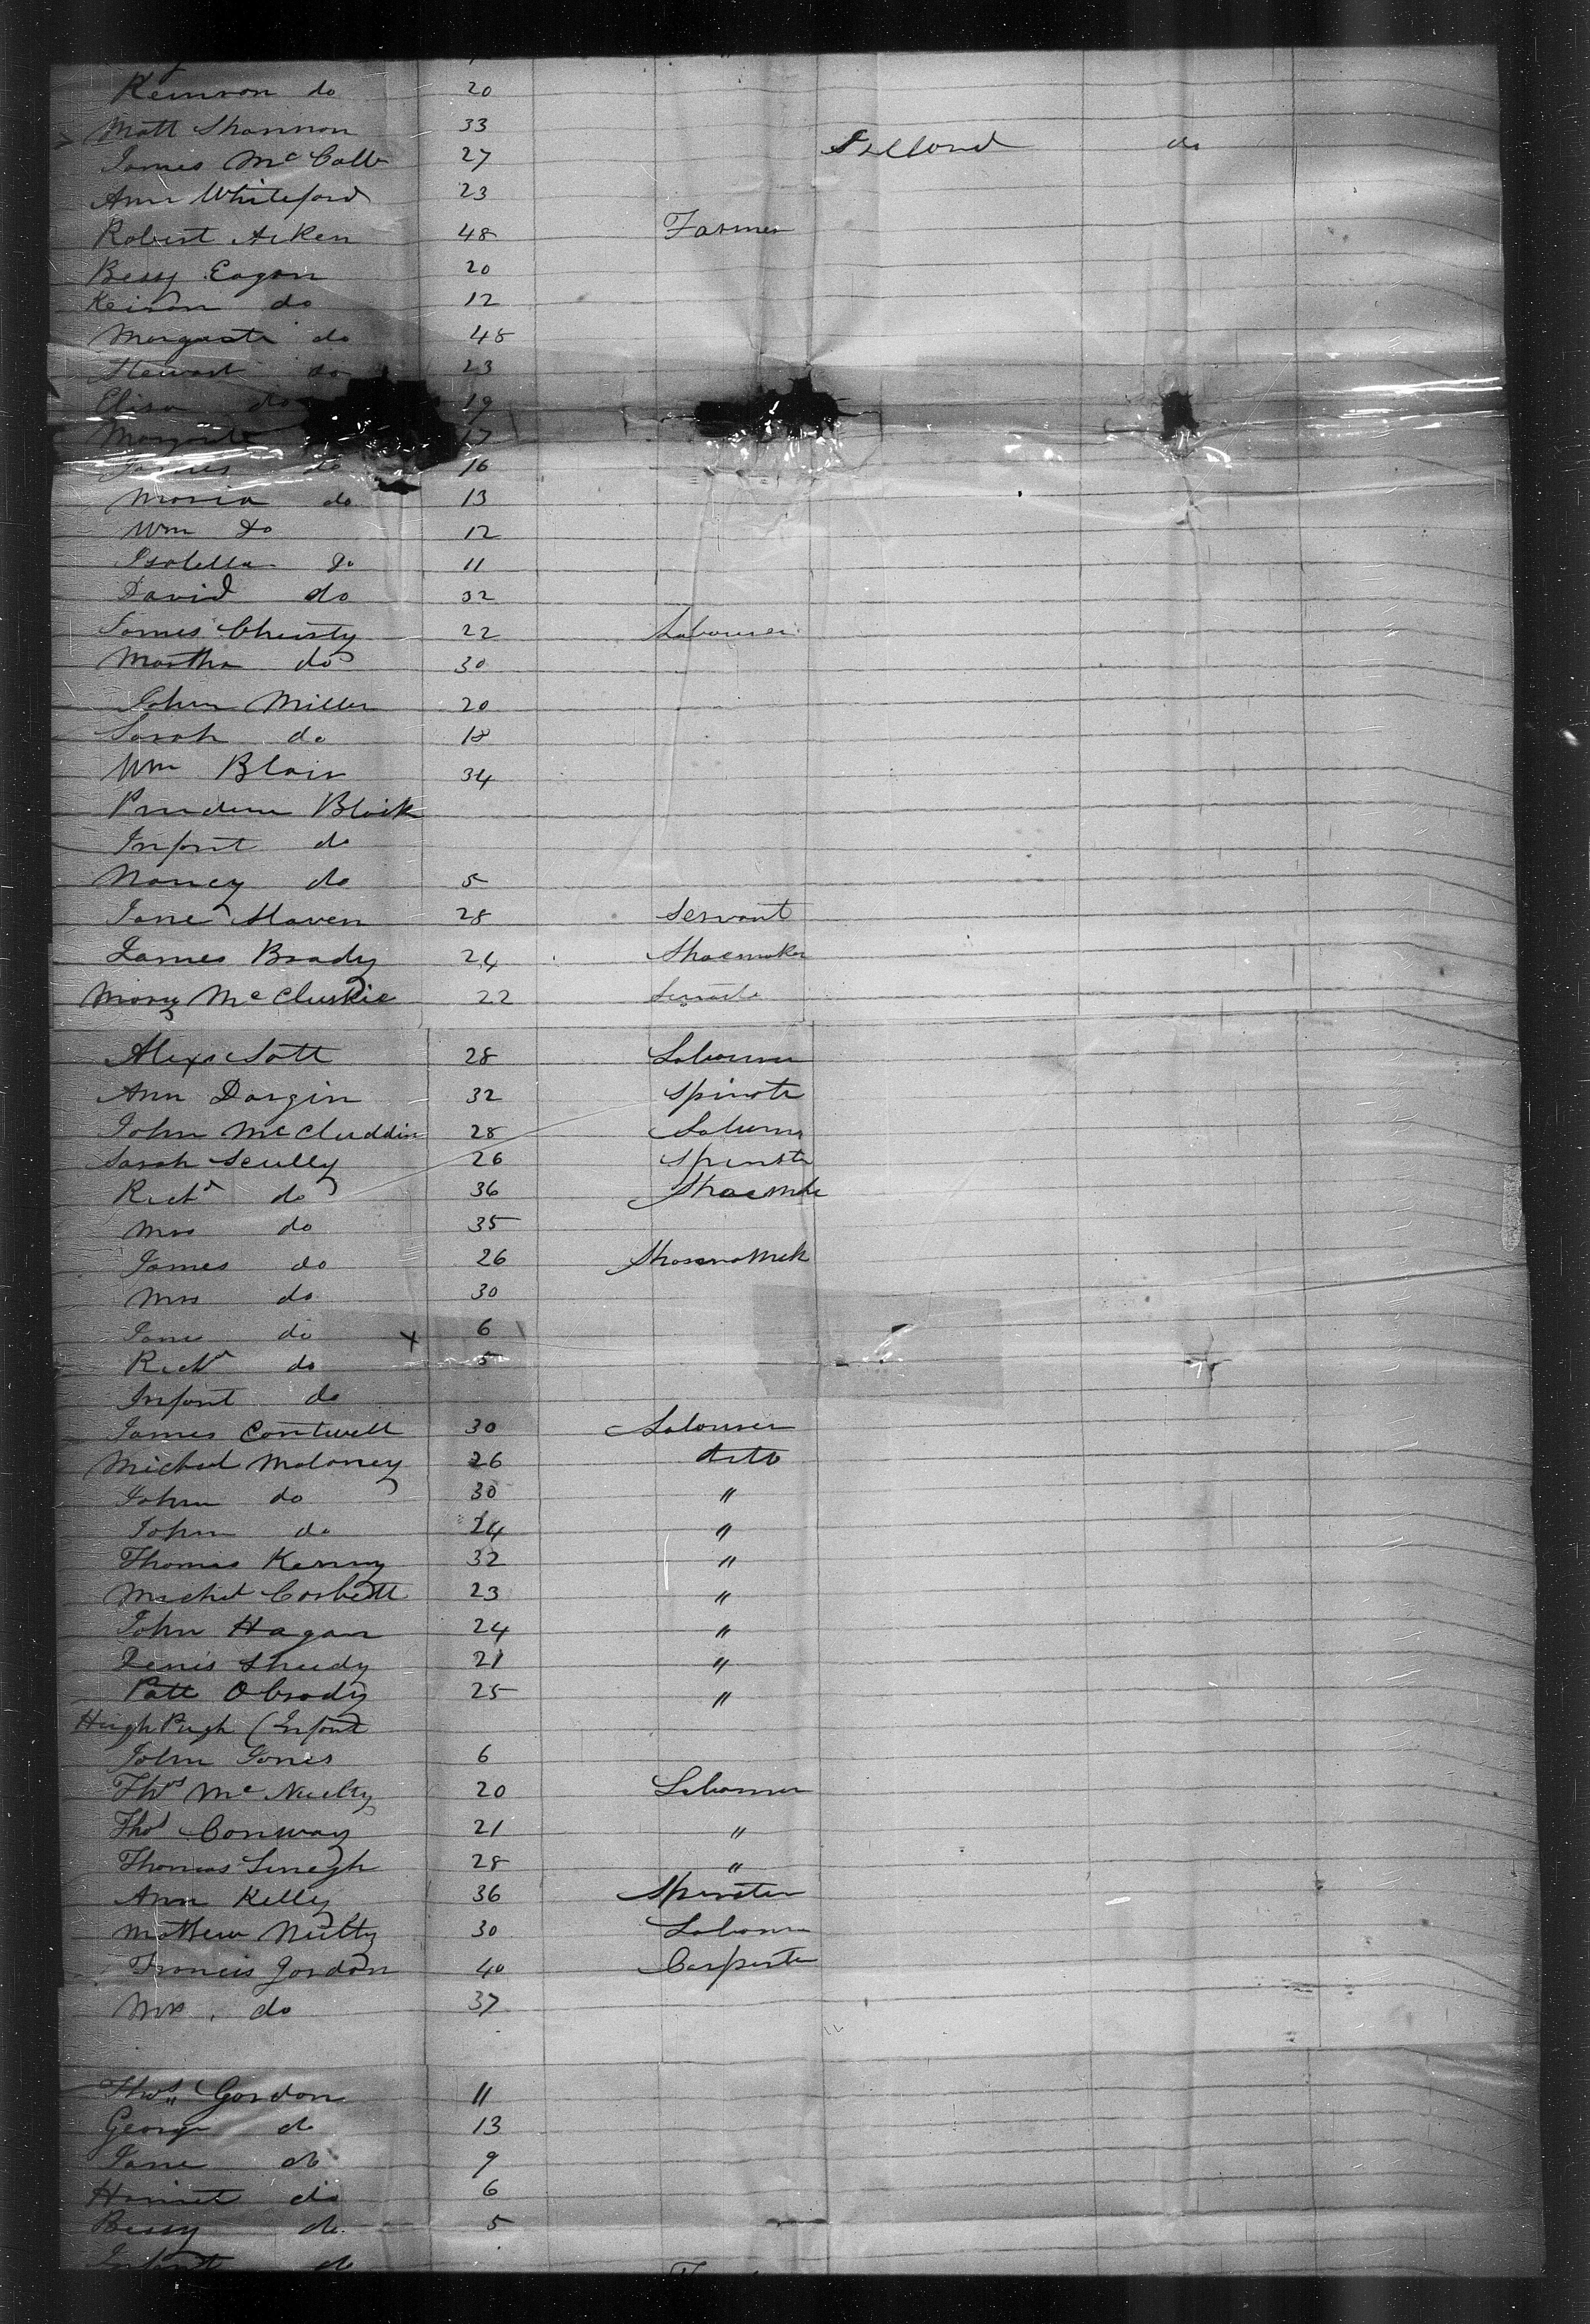 Keinson do 20
Matt Shannon 33
James McCalb 27 Ireland do
Ann Whiteford 23
Robert Aiken 48 Farmer
Bessy Eagan 20
Keison do 12
Margaret do 48
Stewart do 23
Elisa do 19
Margaret 17
James do 16
Maria do 13
Wm do 12
Isabella do 11
David do 32
James Christy 22 Labourer
Martha do 30
John Miller 20
Sarah do 18
Wm Blair 34
Prudence Black
Infant do
Nancy do 5
Jane Slaven 28 Servant
James Brady 24 Shoemaker
Mary McCluskie 22
Alexr Scott 28 Labourer
Ann Dargin 32 Spinster
John McCluddin 28 Labourer
Sarah Scully 26 Spinster
Richd do 36 Shoemaker
Mrs do 35
James do 26
Mrs do 30
Jane do x 6
Richd do 5
Infant do
James Cantwell 30 Labourer
Michael Maloney 26 ditto
John do 30 "
John do 24 "
Thomas Kenny 32 "
Michel Corbett 23 "
John Hagan 24 "
Denis Sheedy 21 "
Patt Obrady 25 "
Hugh Pugh (Infant
John Jones 6
Thos McNulty 20 Labourer
Thos Conway 21 "
Thomas 28 "
Ann Kelly 36 Spinster
Mathew Nulty 30 Labourer
Francis Gordon 40 Carpenter
Mrs. do 37
Thos Gordon 11
George do 13
Jane do 9
Harriet do 6
Bessy do 5
Infant do